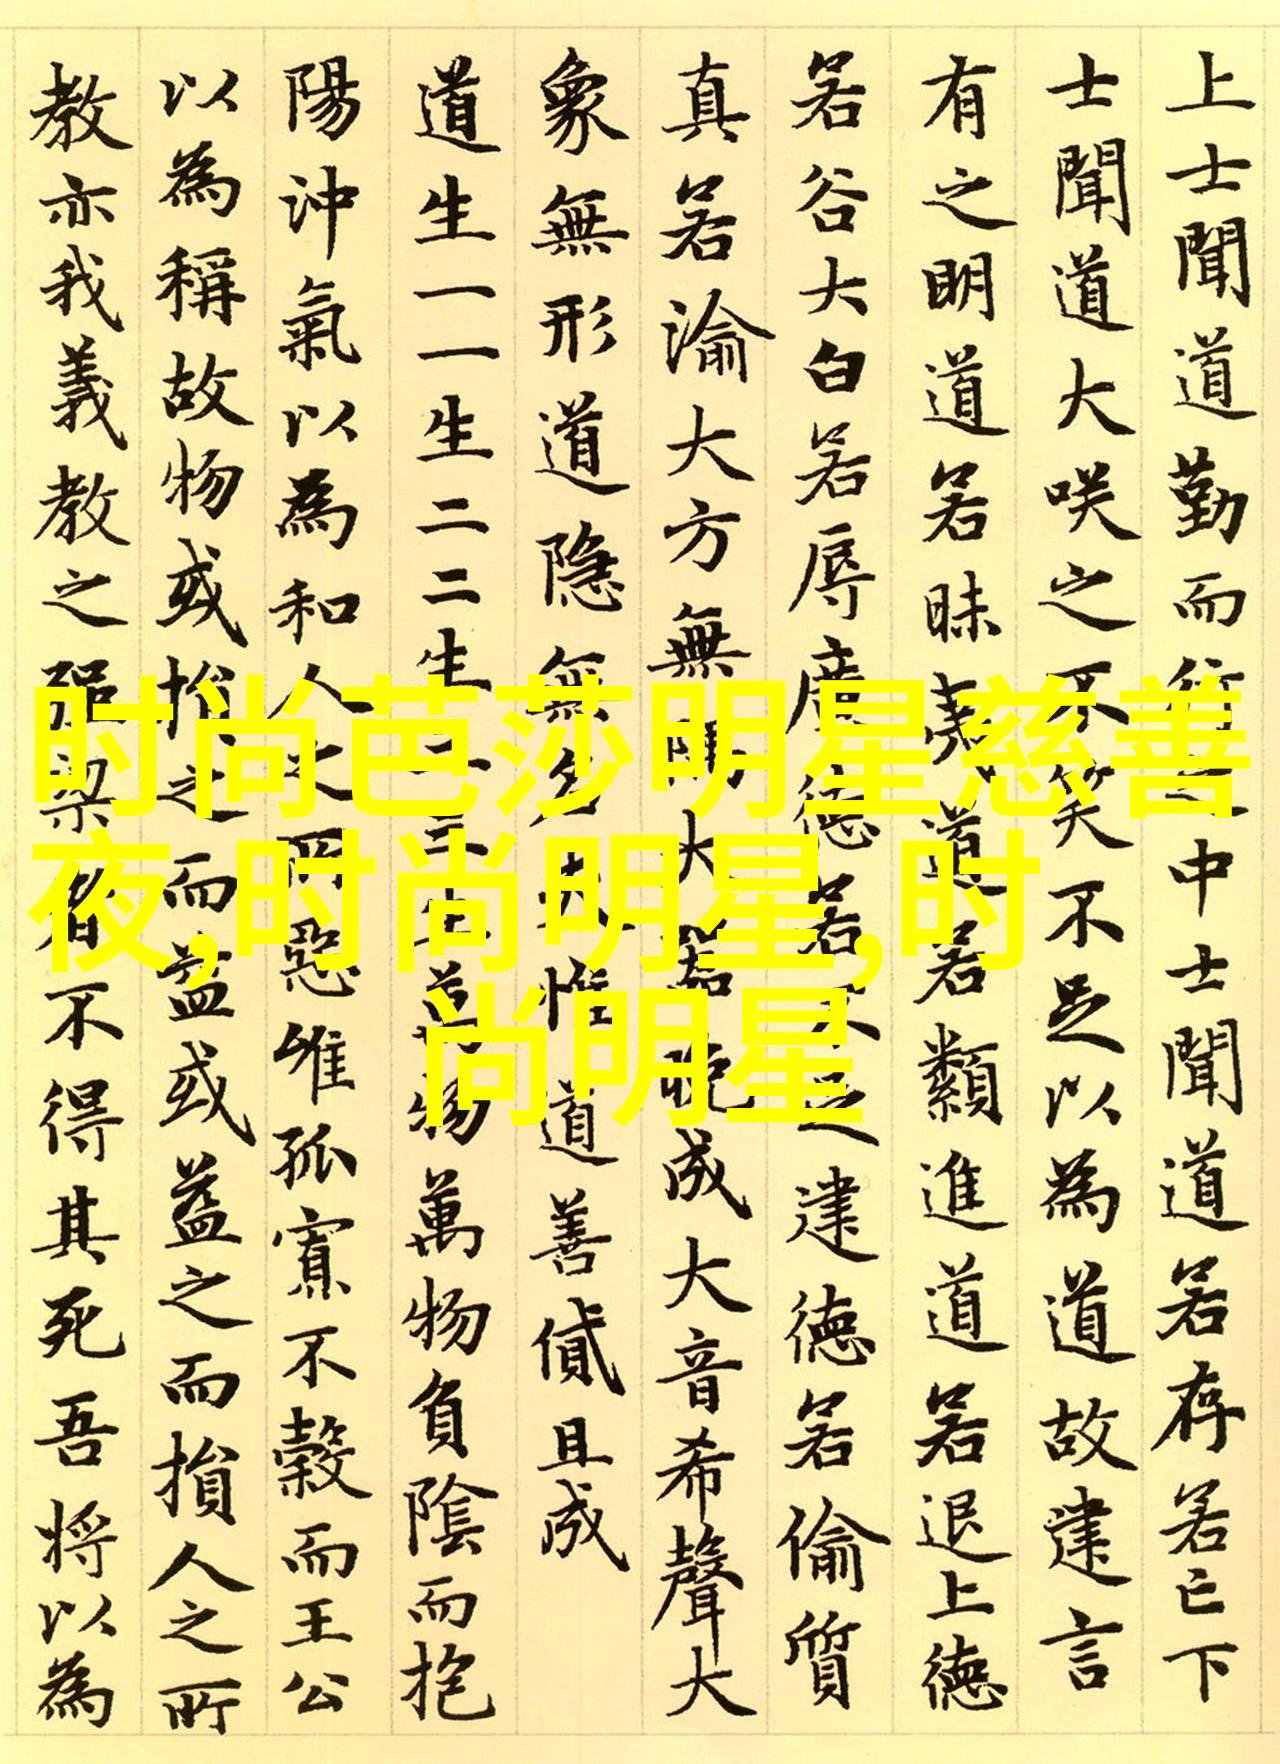 上士聞道勤而行之中士聞道若存若亡下
士聞道大咲之不笑不足以為道故建言
有之明道若昧夷道若類進道若退上德
若谷大白若辱廣德若不足建德若偷質
真若渝大方無隅大器晚成大音希聲大
象無形道隐無名夫惟道善貸且成
道生一一生二二生三三生萬物萬物負陰而抱
陽沖氣以為和人之所惡唯孤寡不穀而王公
以為稱故物或損之而益或益之而損人之所
教亦我義教之強梁者不得其死吾將以為
时尚芭莎明星慈善
夜,时尚明星,时
尚明星